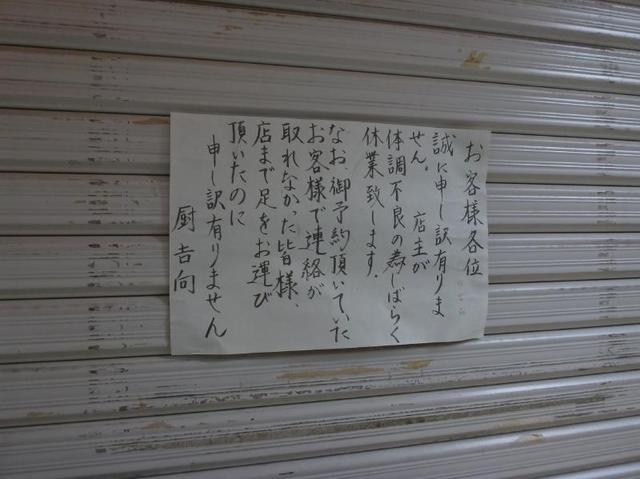 お客様各位
誠に申し訳有りま
せん。　店主が
体調不良の為しばらく
休業致します。
なお、御予約頂いていた
お客様で連絡が
取れなかった皆様、
店まで足をお運び
頂いたのに
申し訳有りません
厨吉向